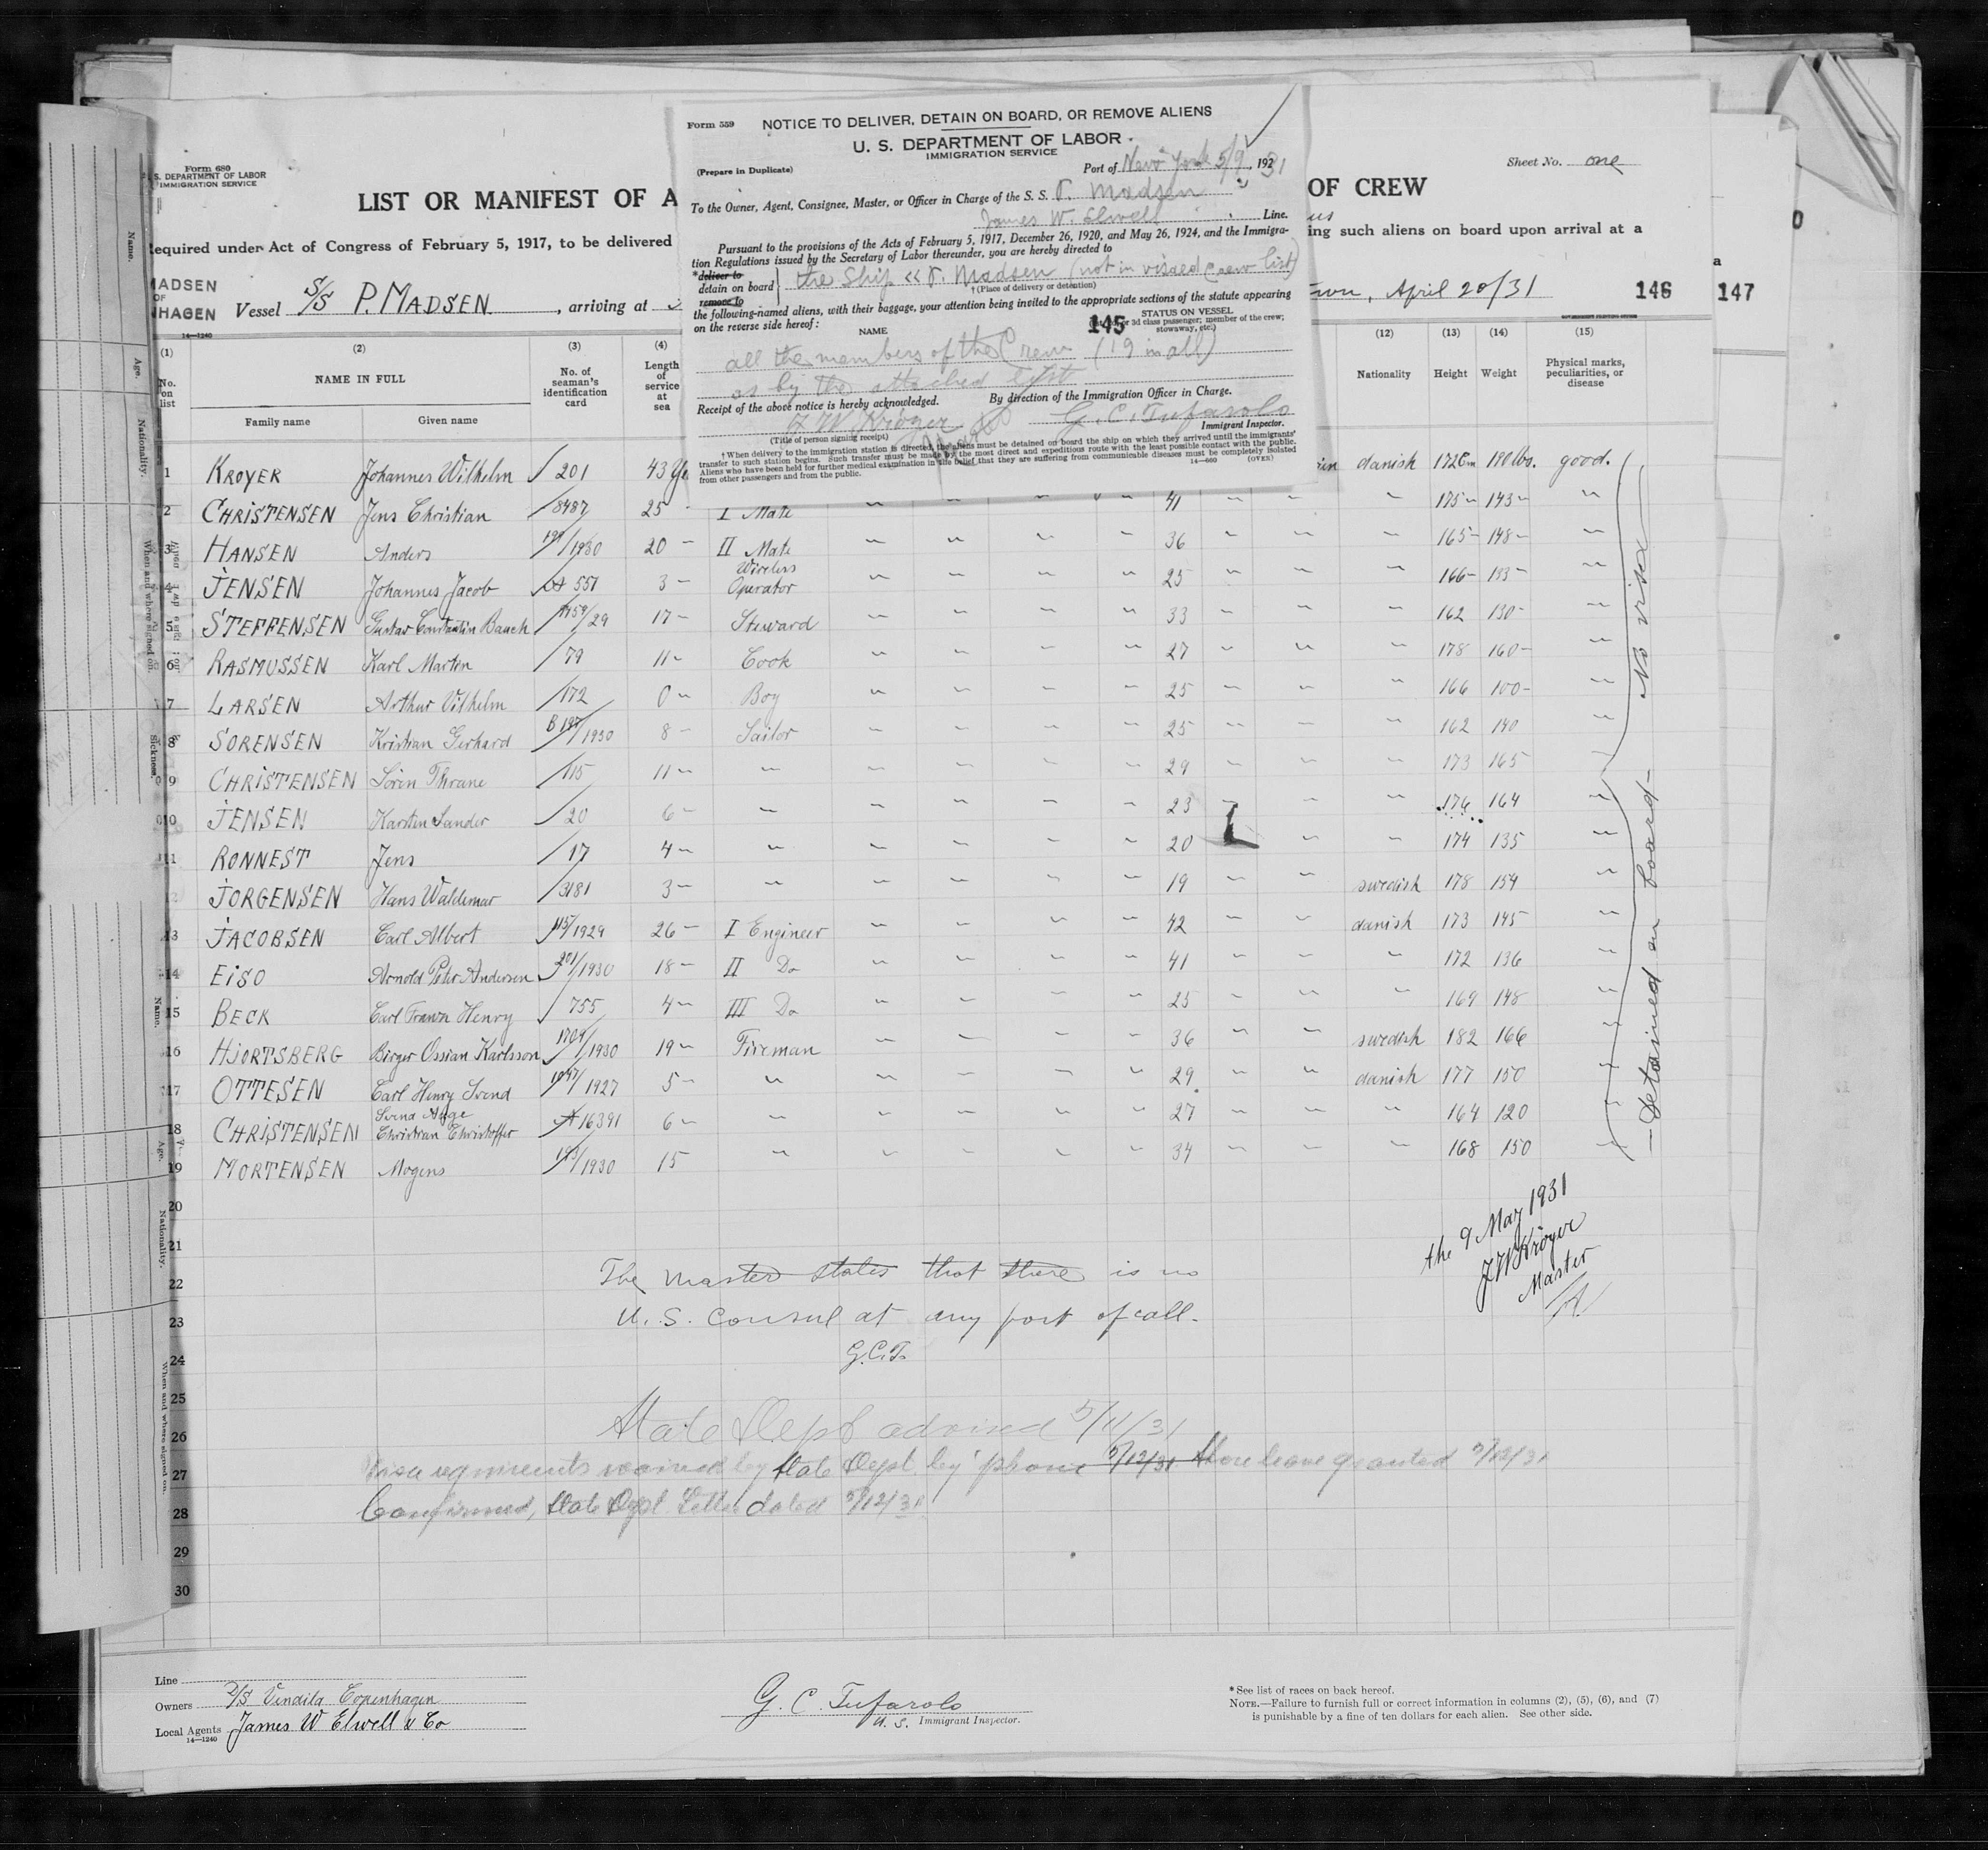 Form 559 NOTICE TO DELIVER, DETAIN ON BOARD, OR REMOVE ALIENS
U. S. DEPARTMENT OF LABOR
IMMIGRATION SERVICE
(Prepare in Duplicate) Port of New York 5/9, 1931
To the Owner, Agent, Consignee, Master, or Officer in Charge of the S. S. P. Madsen
James W. Elwell Line.
Pursuant to the provisions of the Acts of February 5, 1917, December 26, 1920, and May 26, 1924, and the Immigra-
tion Regulations issued by the Secretary of Labor thereunder, you are hereby directed to
*deliver to
detain on board } the Ship "P. Madsen (not in visaed crew list)
remove to †(Place of delivery or detention)
the following-named aliens, with their baggage, your attention being invited to the appropriate sections of the statute appearing
on the reverse side hereof:
NAME 145 STATUS ON VESSEL
3d class passenger; member of the crew;
stowaway, etc.)
all the members of the Crew (19 in all)
as by the attached list
Receipt of the above notice is hereby acknowledged. By direction of the Immigration Officer in Charge.
J W Kröyer Master G. C. Tufarolo
(Title of person signing receipt) Immigrant Inspector.
† When delivery to the immigration station is directed, the aliens must be detained on board the ship on which they arrived until the immigrants'
transfer to such station begins. Such transfer must be made by the most direct and expeditious route with the least possible contact with the public.
Aliens who have been held for further medical examination in the belief that they are suffering from communicable diseases must be completely isolated
from other passengers and from the public. 14—600 (OVER)
Form 680
S. DEPARTMENT OF LABOR
IMMIGRATION SERVICE
Sheet No. one
LIST OR MANIFEST OF A OF CREW
equired under Act of Congress of February 5, 1917, to be delivered ing such aliens on board upon arrival at a
MADSEN
OF
HAGEN
14—1240
Vessel S/S P. MADSEN, arriving at April 20/31 146 147
(1) (2) (3) (4) (12) (13) (14) (15)
No. on list NAME IN FULL No. of seaman's identification card Length of service at sea Nationality Height Weight Physical marks, peculiarities, or disease
Family name Given name
1 KROYER Johannes Wilhelm 201 43 danish 172 Cm 190 lbs. good.
2 CHRISTENSEN Jens Christian 8487 25 - I Mate " " " " " 41 " " " 175 - 143 - "
3 HANSEN Anders 199/1930 20 - II Mate " " " " 36 " " " 165 - 148 - "
4 JENSEN Johannes Jacob A 551 3 - Wireless Operator " " " " 25 " " " 166 - 133 - "
5 STEFFENSEN Gustav Constantin Bauch 1159/29 17 - Steward " " " " 33 " " " 162 130 - "
6 RASMUSSEN Karl Martin 79 11 - Cook " " " " 27 " " " 178 160 - "
7 LARSEN Arthur Vilhelm 172 0 - Boy " " " " 25 " " " 166 100 - "
8 SORENSEN Kristian Gerhard B 197/1930 8 - Sailor " " " " 25 " " " 162 140 "
9 CHRISTENSEN Sören Thrane 115 11 - " " " " " 29 " " " 173 165 "
10 JENSEN Karsten Sander 20 6 - " " " " " 23 " " " 176 164 "
11 RONNEST Jens 17 4 - " " " " " 20 " " 174 135 "
12 JORGENSEN Hans Waldemar 3181 3 - " " " " " 19 " " swedish 178 154 "
13 JACOBSEN Carl Albert 115/1929 26 - I Engineer " " " " 42 " " danish 173 145 "
14 EISO Arnold Peter Andersen 201/1930 18 - II Do " " " " 41 " " " 172 136 "
15 BECK Carl Frantz Henry 755 4 - III Do " " " " 25 " " " 169 148 "
16 HJORTSBERG Birger Ossian Karlsson 1709/1930 19 - Fireman " " " " 36 " " swedish 182 166 "
17 OTTESEN Carl Henry Svend 1047/1927 5 - " " " " " 29 " " danish 177 150 "
18 CHRISTENSEN Svend Aage Christian Christoffer A 16391 6 - " " " " " 27 " " " 164 120 "
19 MORTENSEN Mogens 193/1930 15 " " " " " 34 " " " 168 150 "
20
21
22
23
24
25
26
27
28
29
30
No visa
— Detained on board —
the 9 May 1931
JW Kröyer
Master
The Master states that there is no
U. S. Consul at any port of call.
G.C.T.
State Dept advised 5/11/31
Visa requirements waived by State Dept. by phone 5/12/31 Shore leave granted 5/12/31
Confirmed, State Dept. Letter dated 5/12/31
Line
Owners D/S Vendila Copenhagen
Local Agents James W Elwell & Co
14—1240
G. C. Tufarolo
U. S. Immigrant Inspector.
* See list of races on back hereof.
NOTE.—Failure to furnish full or correct information in columns (2), (5), (6), and (7)
is punishable by a fine of ten dollars for each alien. See other side.
Name.
Age.
Nationality.
When and where signed on.
Sickness.
Name.
Age.
Nationality.
When and where signed on.